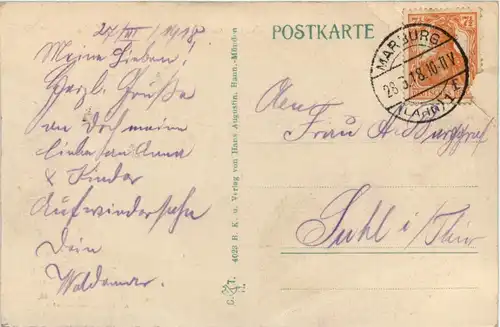 27/III 1918
Meine Lieben!
Herzl. Grüße
an Dich meine
liebe Anna
& Kinder
Aufwiedersehn
Dein
Waldemar.
4029 B. K. u. Verlag von Hans Augustin, Hann.-Münden
POSTKARTE
7½ 7½
MARBURG
28.3.18.10-11V
(LAHN)
Frau A. Burggraf
Suhl i/Thür